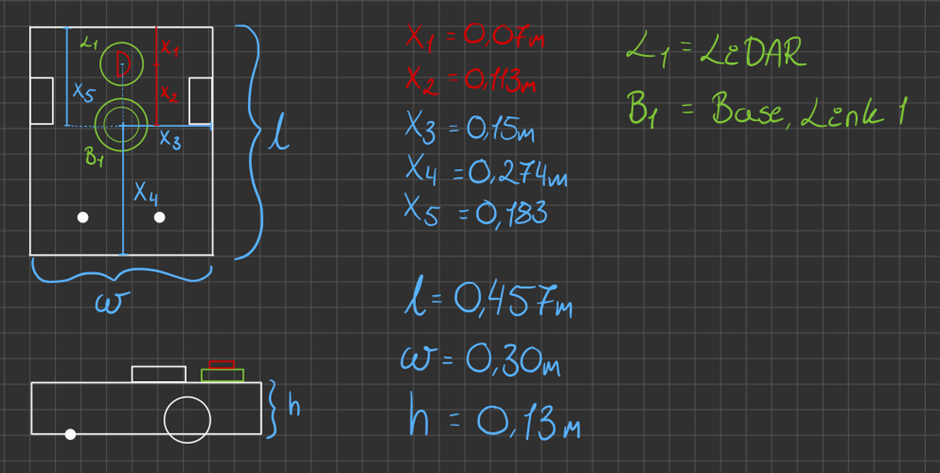 L₁
D
X₁
X₂
X₅
X₃
B₁
X₄
l
w
h
X₁ = 0,07m
X₂ = 0,113m
X₃ = 0,15m
X₄ = 0,274m
X₅ = 0,183
l = 0,457m
w = 0,30m
h = 0,13m
L₁ = LiDAR
B₁ = Base, Link 1